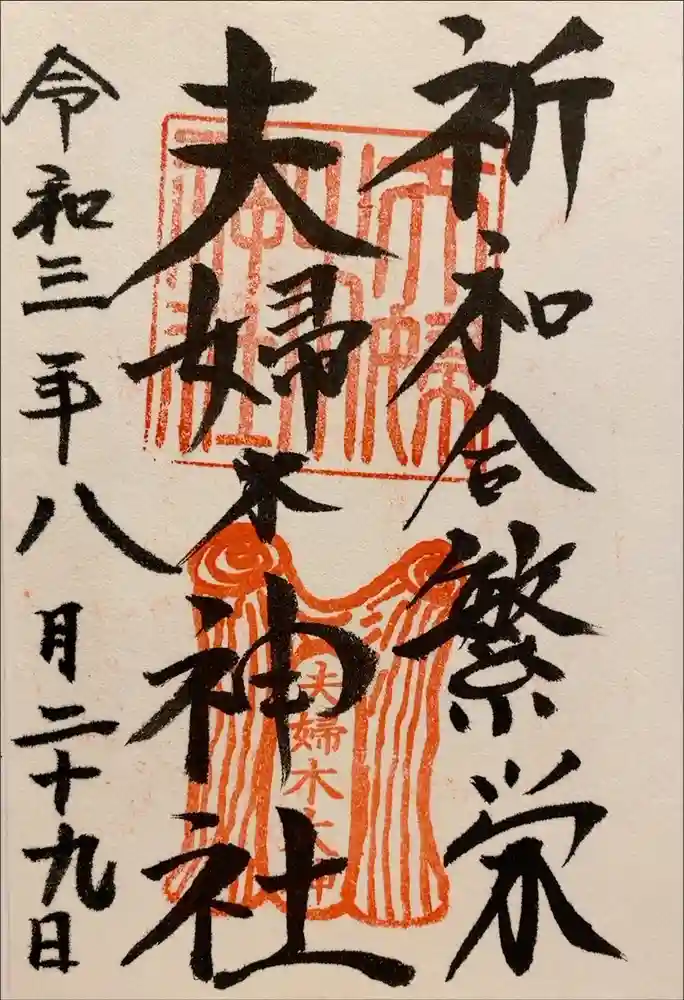 祈和合繁栄
夫婦木神社
夫婦木大神
令和三年八月二十九日